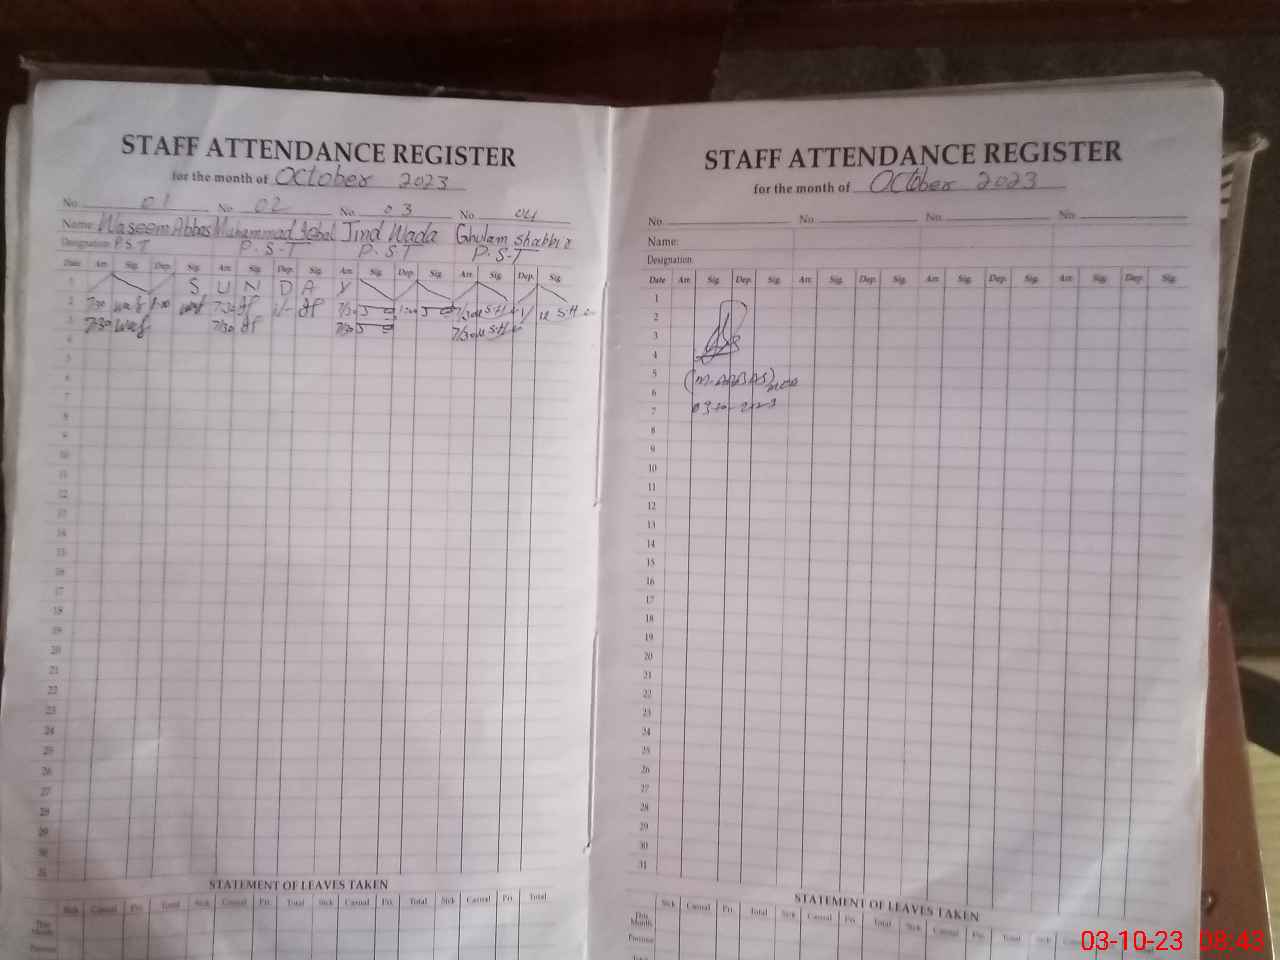 STAFF ATTENDANCE REGISTER
for the month of October 2023
No. 01 No. 02 No. 03 No. 04
Name: Waseem Abbas Muhammad Iqbal Jind Wada Ghulam Shabbir
Designation P.S.T P.S-T P.S-T P.S-T
Date Arr. Sig. Dep. Sig. Arr. Sig. Dep. Sig. Arr. Sig. Dep. Sig. Arr. Sig. Dep. Sig.
1 S U N D A Y
2 7:30 1:30 7:30 7/30 1:30
3 7:30 7/30 7/30
4
5
6
7
8
9
10
11
12
13
14
15
16
17
18
19
20
21
22
23
24
25
26
27
28
29
30
31
STATEMENT OF LEAVES TAKEN
Sick Casual Pri. Total Sick Casual Pri. Total Sick Casual Pri. Total Sick Casual Pri. Total
This Month
Previous
STAFF ATTENDANCE REGISTER
for the month of October 2023
No. No. No. No.
Name:
Designation
Date Arr. Sig. Dep. Sig. Arr. Sig. Dep. Sig. Arr. Sig. Dep. Sig. Arr. Sig. Dep. Sig.
1
2
3
4
5 (M. ABBAS)
6
7 03-10-2023
8
9
10
11
12
13
14
15
16
17
18
19
20
21
22
23
24
25
26
27
28
29
30
31
STATEMENT OF LEAVES TAKEN
Sick Casual Pri. Total Sick Casual Pri. Total Sick Casual Pri. Total Sick
This Month
Previous
Total
03-10-23 08:43